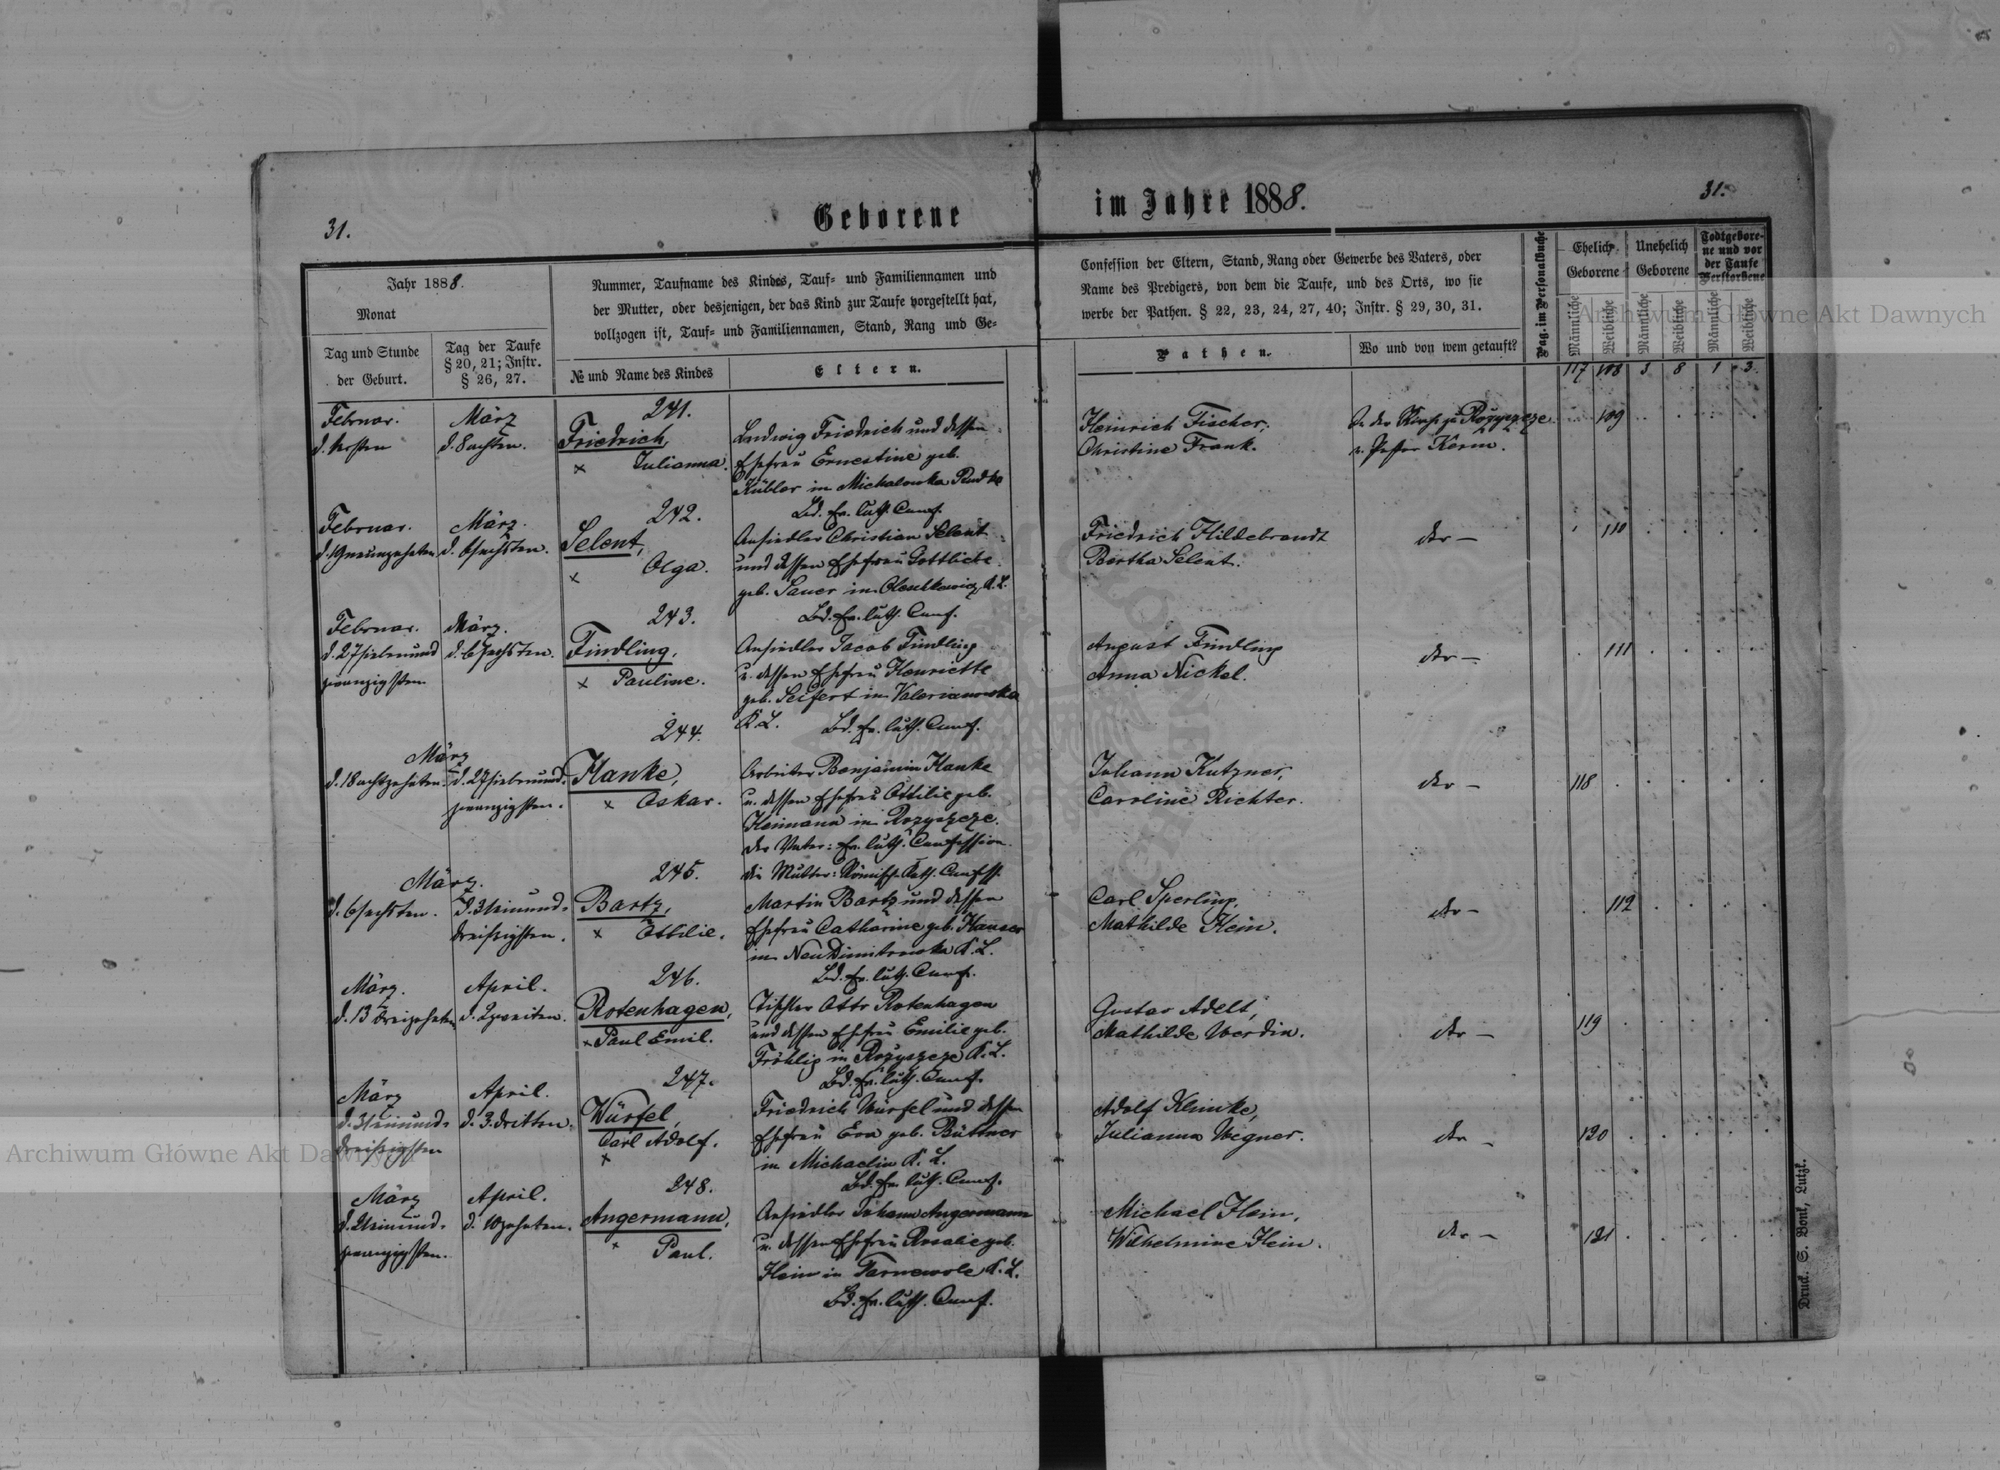 31.
Geborene
im Jahre 1888.
31.
Jahr 1888.
Monat
Tag und Stunde
der Geburt.
Tag der Taufe
§ 20, 21; Instr.
§ 26, 27.
Nummer, Taufname des Kindes, Tauf- und Familiennamen und
der Mutter, oder desjenigen, der das Kind zur Taufe vorgestellt hat,
vollzogen ist, Tauf- und Familiennamen, Stand, Rang und Ge-
№ und Name des Kindes
Eltern.
Confession der Eltern, Stand, Rang oder Gewerbe des Vaters, oder
Name des Predigers, von dem die Taufe, und des Orts, wo sie
werbe der Pathen. § 22, 23, 24, 27, 40; Instr. § 29, 30, 31.
Pathen.
Wo und von wem getauft?
Pag. im Personalbuche
Ehelich
Geborene
Unehelich
Geborene
Todtgebore-
ne und vor
der Taufe
Verstorbene
Männliche
Weibliche
Männliche
Weibliche
Männliche
Weibliche
117 108 3 8 1 3.
Februar.
März
d. 8 achten.
241.
Friedrich,
× Julianna.
Ludwig Friedrich und dessen
Ehefrau Ernestine geb.
Kübler in Michalowka
Bd. Ev. luth. Conf.
Heinrich Fischer,
Christine Frank.
In der Kirche zu Rozyszcze
v. Pastor Kerm.
109
Februar.
d. 19 neunzehnten
März.
d. 6 sechsten.
242.
Selent,
× Olga.
Ansiedler Christian Selent
und dessen Ehefrau Gottliebe
geb. Sauer in K. L.
Bd. Ev. luth. Conf.
Friedrich Hildebrandt
Bertha Selent.
dto —
110
Februar.
d. 27 siebenund
zwanzigsten
März.
d. 6 sechsten.
243.
Findling,
× Pauline.
Ansiedler Jacob Findling
u. dessen Ehefrau Henriette
geb. Seifert in Valerianowka
K. L. Bd. Ev. luth. Conf.
August Findling
Anna Nickel.
dto —
111
März
d. 18 achtzehnten.
d. 27 siebenund-
zwanzigsten.
244.
Hanke,
× Oskar.
Arbeiter Benjamin Hanke
u. dessen Ehefrau Ottilie geb.
Heimann in Rozyszcze.
der Vater: Ev. luth. Confession.
die Mutter: Römisch Kath. Confess.
Johann Kutzner,
Caroline Richter.
dto —
118
März.
d. 6 sechsten.
d. 31 einund-
dreißigsten.
245.
Bartz,
× Ottilie.
Martin Bartz und dessen
Ehefrau Catharine geb. Hauser
in Neu Dimitrowka K. L.
Bd. Ev. luth. Conf.
Carl Sperling,
Mathilde Hein.
dto —
112
März.
d. 13 dreizehnten
April.
d. 2 zweiten.
246.
Rotenhagen,
× Paul Emil.
Tischler Otto Rotenhagen
und dessen Ehefrau Emilie geb.
Fröhlig in Rozyszcze K. L.
Bd. Ev. luth. Conf.
Gustav Adelt,
Mathilde Werdin.
dto —
119
März
d. 31 einund-
dreißigsten
April.
d. 3. dritten.
247.
Würfel,
Carl Adolf.
×
Friedrich Würfel und dessen
Ehefrau Eva geb. Büttner
in Michaelin K. L.
Bd. Ev. luth. Conf.
Adolf Klimke,
Julianna Wegner.
dto —
120
März
d. 21 einund-
zwanzigsten.
April.
d. 10 zehnten.
248.
Angermann,
× Paul.
Ansiedler Johann Angermann
u. dessen Ehefrau Rosalie geb.
Hein in Tarnowole K. L.
Bd. Ev. luth. Conf.
Michael Hein,
Wilhelmine Hein.
dto —
121
Druck. S. Bonk, Lutzk.
Archiwum Główne Akt Dawnych
Archiwum Główne Akt Dawnych